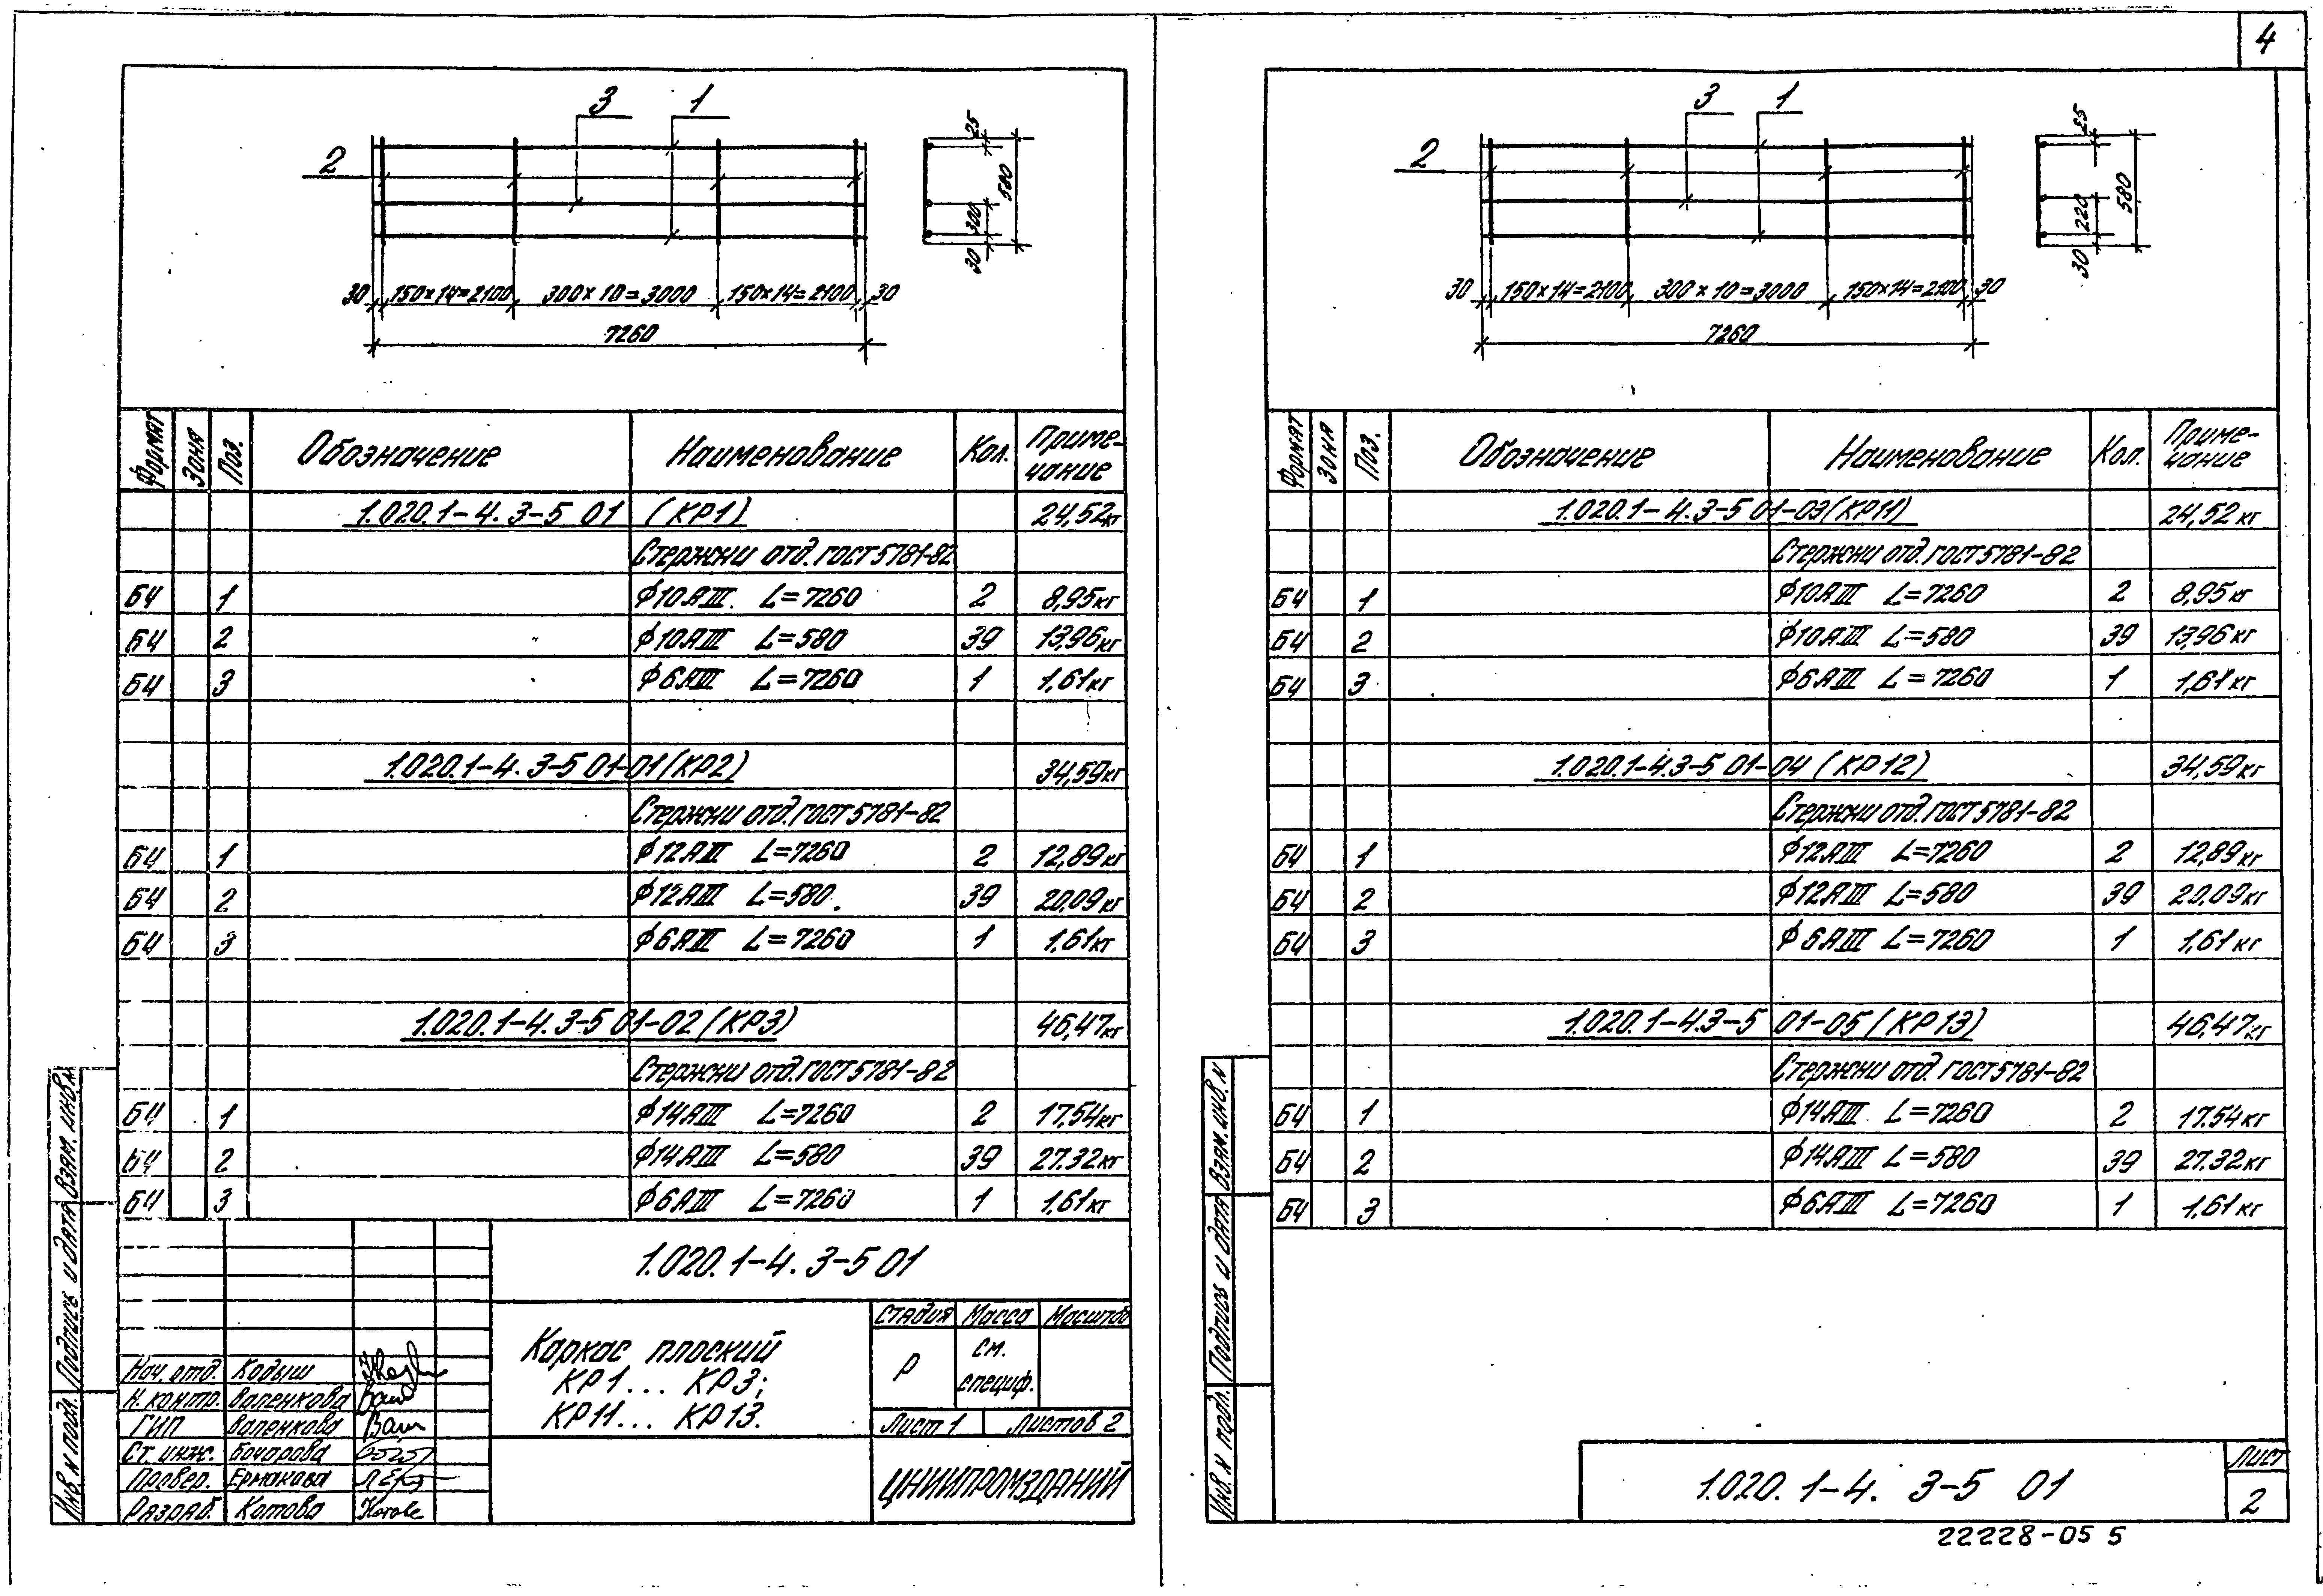 4
3 1
2
25
580
300
30
30 150×14=2100 300×10=3000 150×14=2100 30
7260
Формат Зона Поз. Обозначение Наименование Кол. Примечание
1.020.1-4.3-5 01 (КР1) 24,52кг
Стержни отд. ГОСТ 5781-82
БЧ 1 ϕ10АIII L=7260 2 8,95кг
БЧ 2 ϕ10АIII L=580 39 13,96кг
БЧ 3 ϕ6АIII L=7260 1 1,61кг
1.020.1-4.3-5 01-01 (КР2) 34,59кг
Стержни отд. ГОСТ 5781-82
БЧ 1 ϕ12АIII L=7260 2 12,89кг
БЧ 2 ϕ12АIII L=580. 39 20,09кг
БЧ 3 ϕ6АIII L=7260 1 1,61кг
1.020.1-4.3-5 01-02 (КР3) 46,47кг
Стержни отд. ГОСТ 5781-82
БЧ 1 ϕ14АIII L=7260 2 17,54кг
БЧ 2 ϕ14АIII L=580 39 27.32кг
БЧ 3 ϕ6АIII L=7260 1 1,61кг
1.020.1-4.3-5 01
Каркас плоский
КР1... КР3;
КР11... КР13.
Стадия Масса Масштаб
Р см. специф.
Лист 1 Листов 2
ЦНИИПРОМЗДАНИЙ
Нач. отд. Кодыш
Н. контр. Валенкова
ГИП Валенкова
Ст. инж. Бочарова
Провер. Ермакова
Разраб. Котова Котова
Инв. N подл. Подпись и дата Взам. инв. N
3 1
2
25
580
220
30
30 150×14=2100 300×10=3000 150×14=2100 30
7260
Формат Зона Поз. Обозначение Наименование Кол. Примечание
1.020.1-4.3-5 01-03 (КР11) 24,52 кг
Стержни отд. ГОСТ 5781-82
БЧ 1 ϕ10АIII L=7260 2 8,95кг
БЧ 2 ϕ10АIII L=580 39 13,96 кг
БЧ 3 ϕ6АIII L=7260 1 1,61кг
1.020.1-4.3-5 01-04 (КР12) 34,59кг
Стержни отд. ГОСТ 5781-82
БЧ 1 ϕ12АIII L=7260 2 12,89кг
БЧ 2 ϕ12АIII L=580 39 20,09кг
БЧ 3 ϕ6АIII L=7260 1 1,61 кг
1.020.1-4.3-5 01-05 (КР13) 46,47кг
Стержни отд. ГОСТ 5781-82
БЧ 1 ϕ14АIII L=7260 2 17.54кг
БЧ 2 ϕ14АIII L=580 39 27.32кг
БЧ 3 ϕ6АIII L=7260 1 1,61 кг
Инв. N подл. Подпись и дата Взам. инв. N
1.020.1-4. 3-5 01
Лист
2
22228-05 5